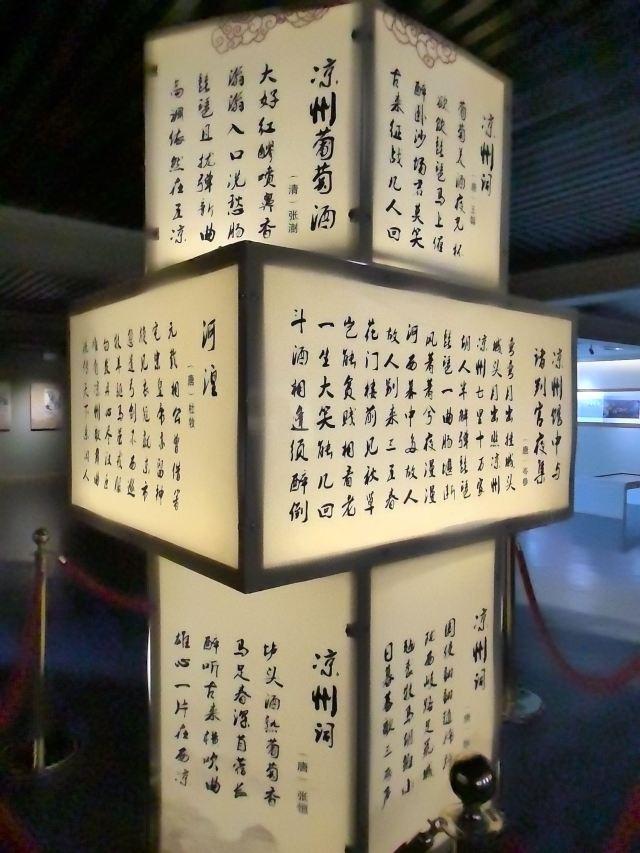 凉州葡萄酒
（清）张澍
大好红醪喷鼻香
溜溜入口沇愁肠
琵琶且拢弹新曲
高调依然在五凉
凉州词
（唐）王翰
葡萄美酒夜光杯
欲饮琵琶马上催
醉卧沙场君莫笑
古来征战几人回
河湟
（唐）杜牧
元载相公曾借箸
宪宗皇帝亦留神
旋见衣冠就东市
忽遗弓剑不西巡
牧羊驱马虽戎服
白发丹心尽汉臣
唯有凉州歌舞曲
流传天下乐闲人
凉州馆中与
诸判官夜集
（唐）岑参
弯弯月出挂城头
城头月出照凉州
凉州七里十万家
胡人半解弹琵琶
琵琶一曲肠堪断
风萧萧兮夜漫漫
河西幕中多故人
故人别来三五春
花门楼前见秋草
岂能贫贱相看老
一生大笑能几回
斗酒相逢须醉倒
凉州词
（唐）张恒
垆头酒熟葡萄香
马足春深苜蓿长
醉听古来横吹曲
雄心一片在西凉
凉州词
牧马
日暮